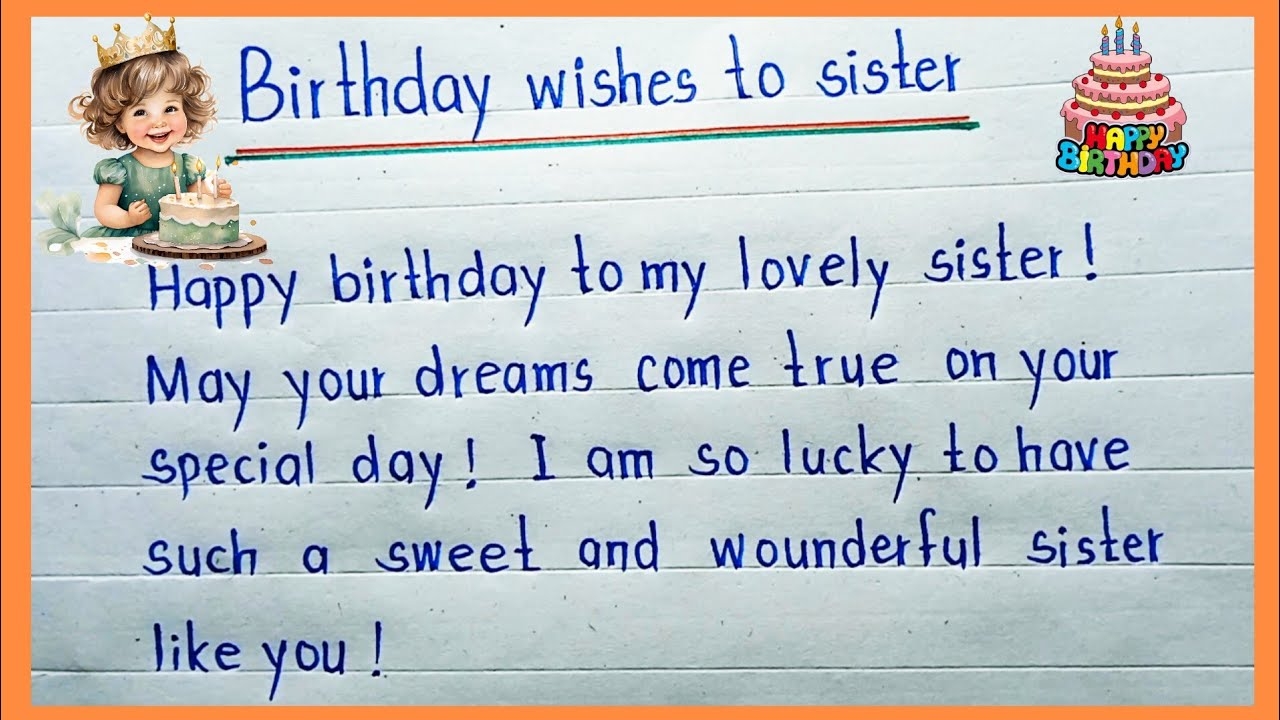 Birthday wishes to sister
HAPPY
BIRTHDAY
Happy birthday to my lovely sister!
May your dreams come true on your
special day! I am so lucky to have
such a sweet and wounderful sister
like you!